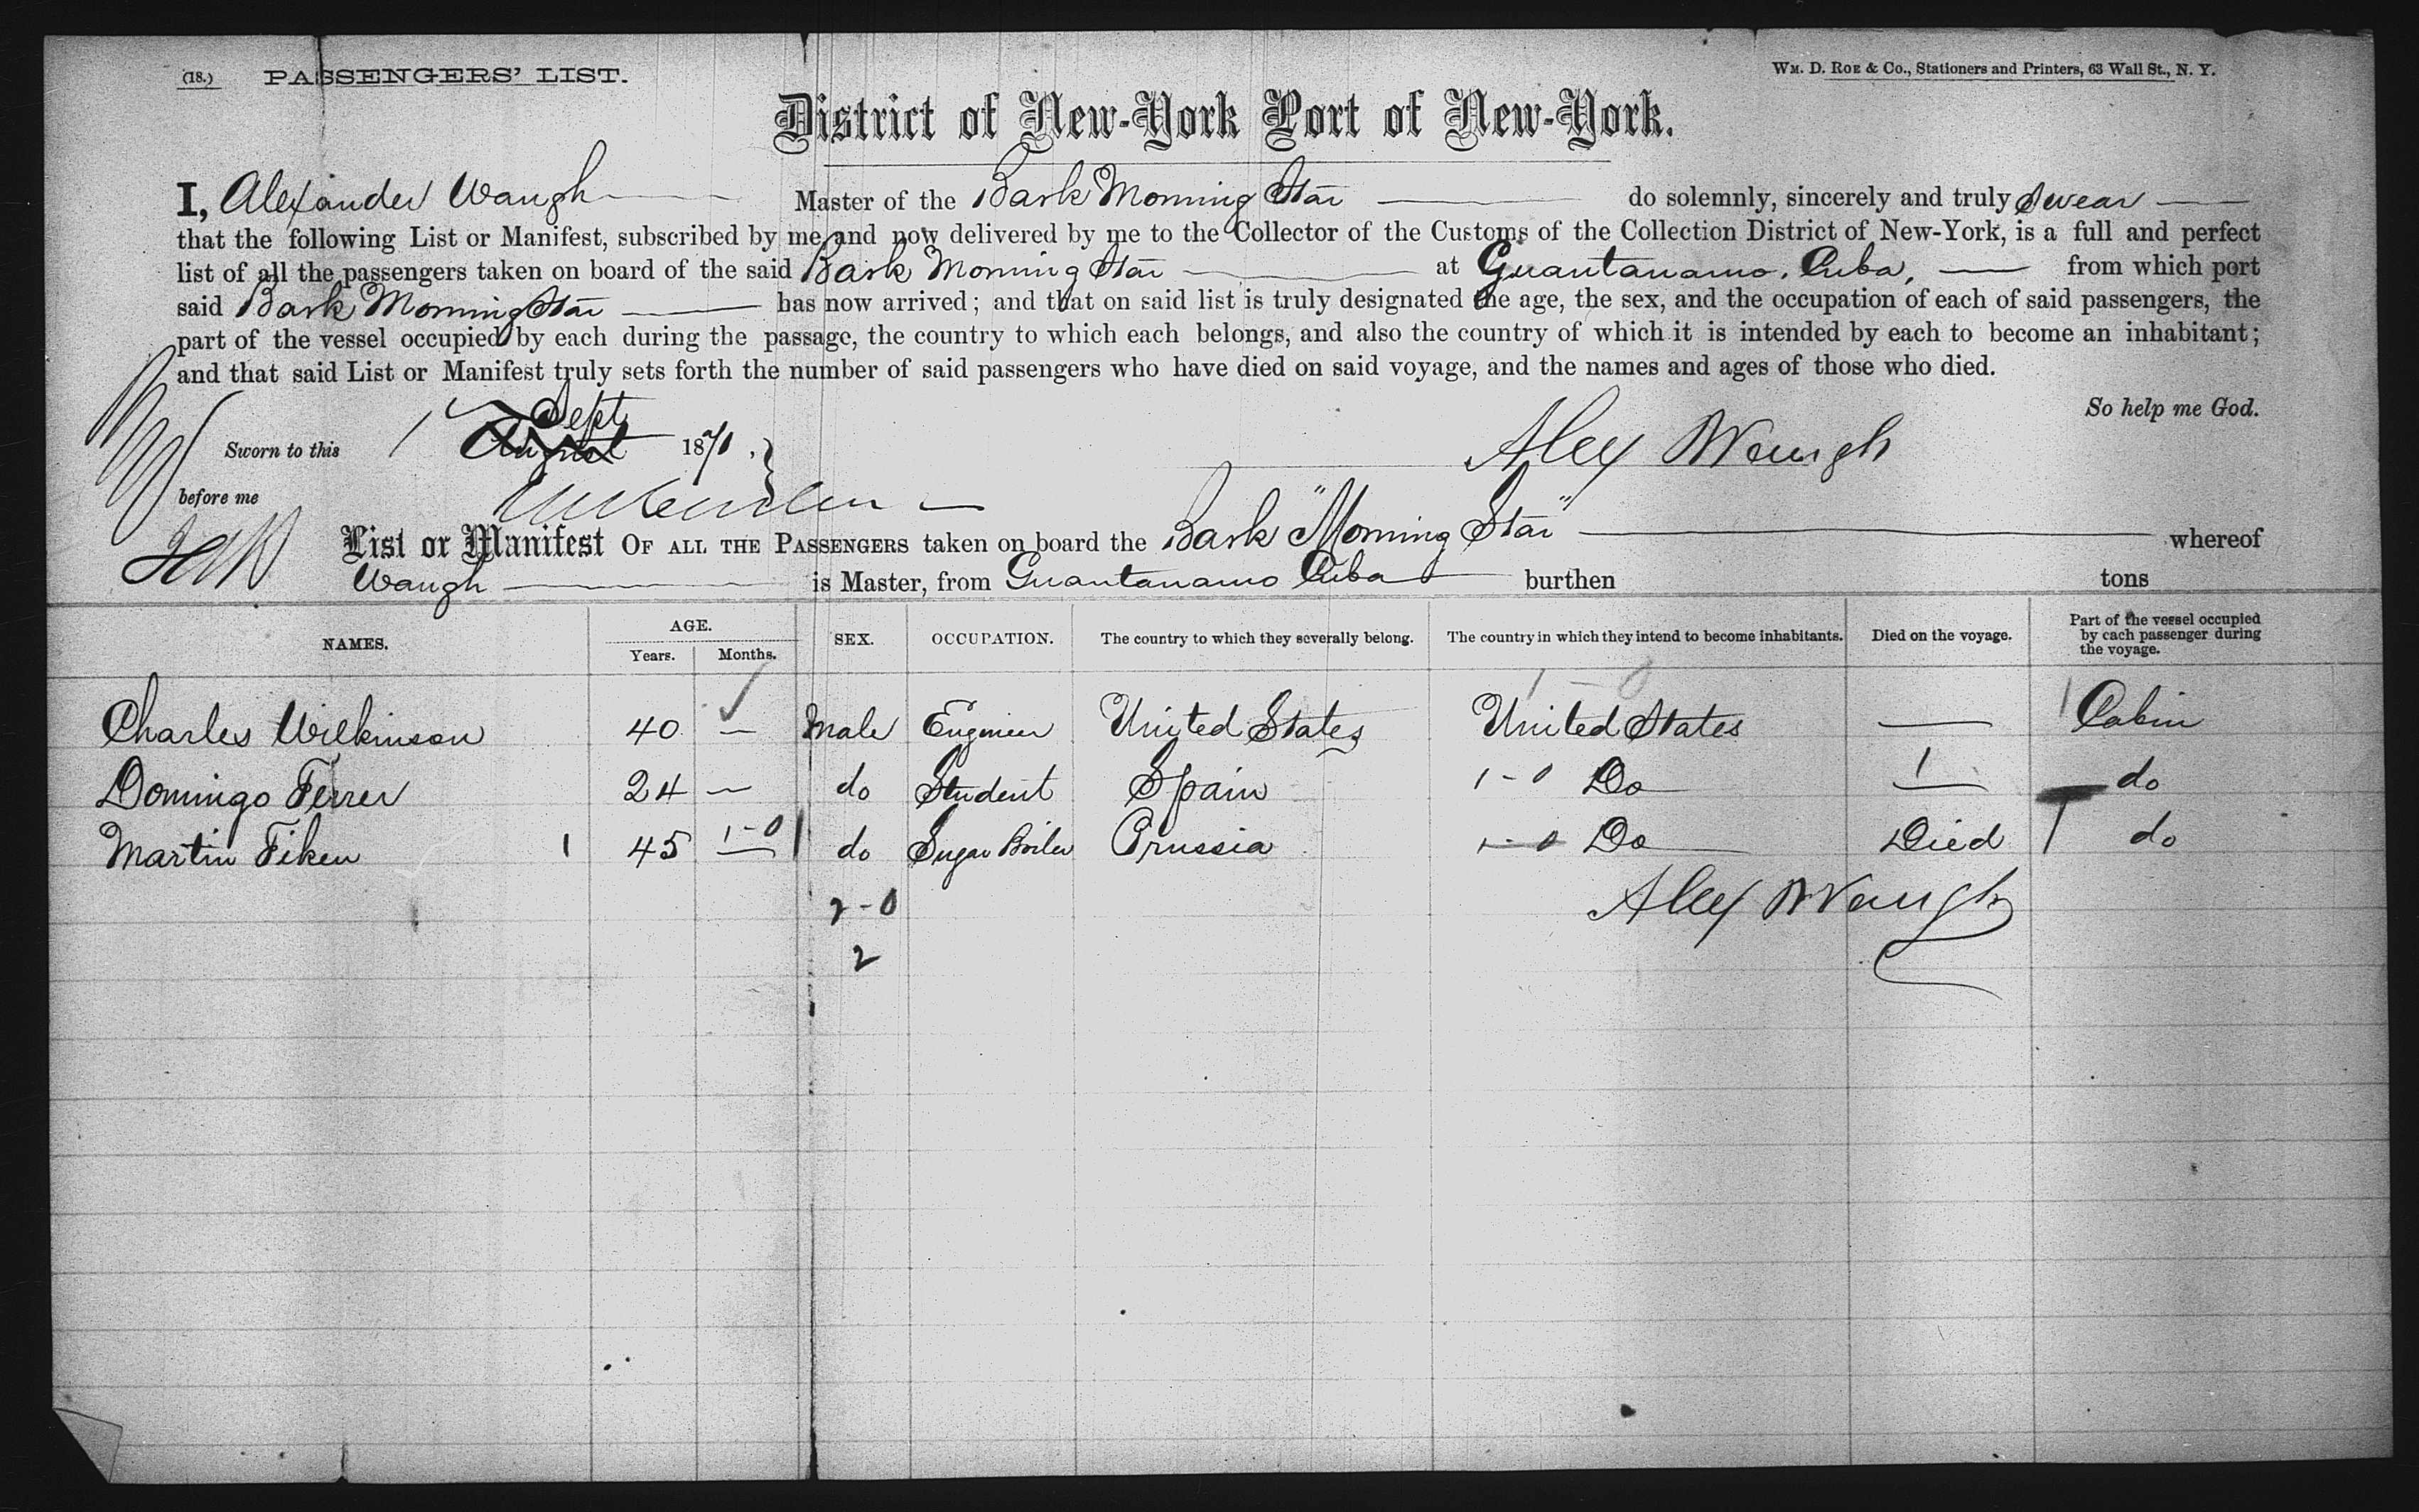 (18.) PASSENGERS' LIST. Wm. D. Roe & Co., Stationers and Printers, 63 Wall St., N. Y.
District of New-York Port of New-York.
I, Alexander Waugh Master of the Bark Morning Star do solemnly, sincerely and truly swear
that the following List or Manifest, subscribed by me and now delivered by me to the Collector of the Customs of the Collection District of New-York, is a full and perfect
list of all the passengers taken on board of the said Bark Morning Star at Guantanamo, Cuba, from which port
said Bark Morning Star has now arrived; and that on said list is truly designated the age, the sex, and the occupation of each of said passengers, the
part of the vessel occupied by each during the passage, the country to which each belongs, and also the country of which it is intended by each to become an inhabitant;
and that said List or Manifest truly sets forth the number of said passengers who have died on said voyage, and the names and ages of those who died.
So help me God.
Sept
Sworn to this 1 August 1870, Alex Waugh
before me
List or Manifest OF ALL THE PASSENGERS taken on board the Bark "Morning Star" whereof
Waugh is Master, from Guantanamo Cuba burthen tons
NAMES. AGE. Years. Months. SEX. OCCUPATION. The country to which they severally belong. The country in which they intend to become inhabitants. Died on the voyage. Part of the vessel occupied by each passenger during the voyage.
1-0
Charles Wilkinson 40 — Male Engineer United States United States — 1 Cabin
Domingo Ferrer 24 — do Student Spain 1-0 Do 1 — do
Martin Fiken 1 45 1-0 — 1 do Sugar Boiler Prussia 1-0 Do Died 1 do
2-0 Alex Waugh
2